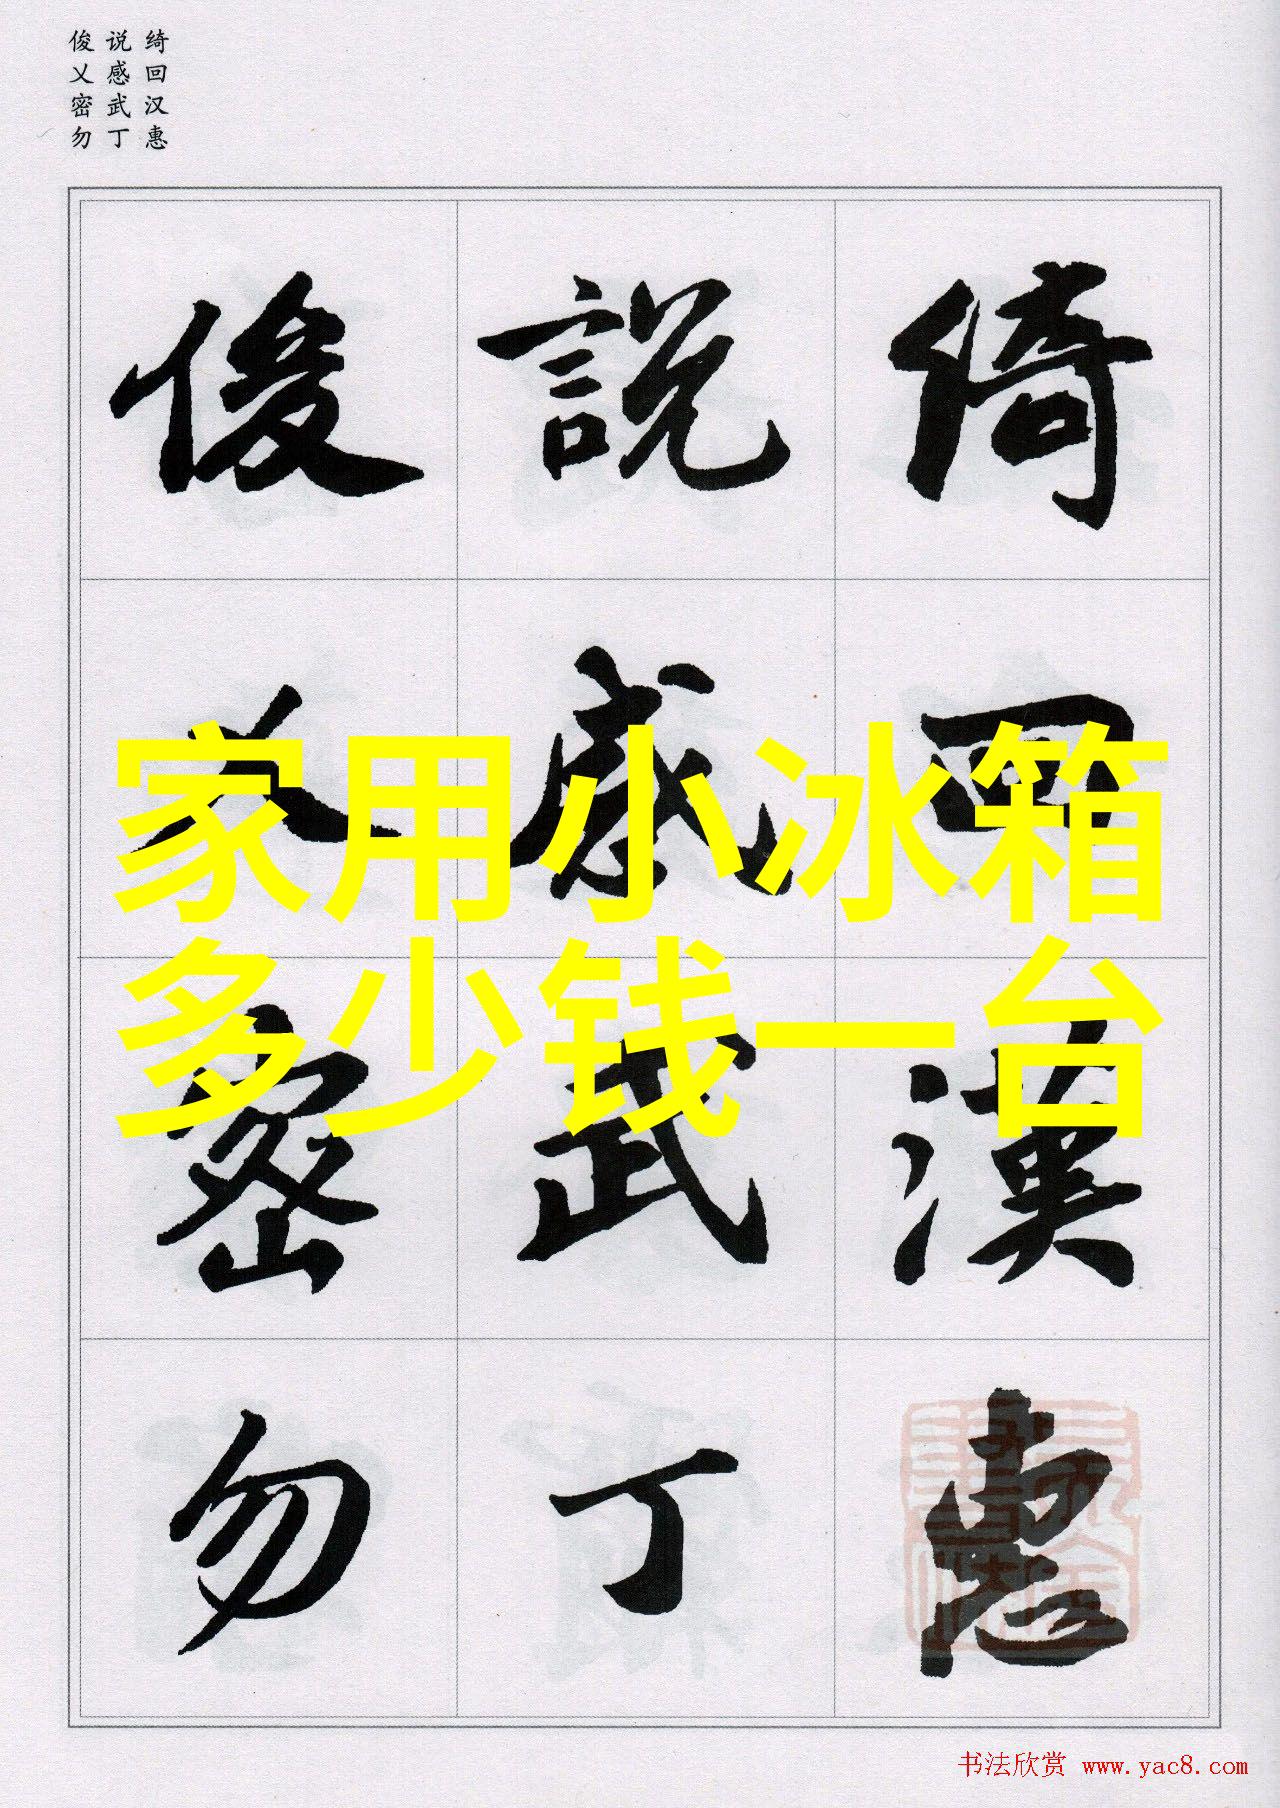 绮回汉惠
说感武丁
俊乂密勿
綺 回 漢 惠
說 感 武 丁
俊 乂 密 勿
家用小冰箱
多少钱一台
书法欣赏 www.yac8.com